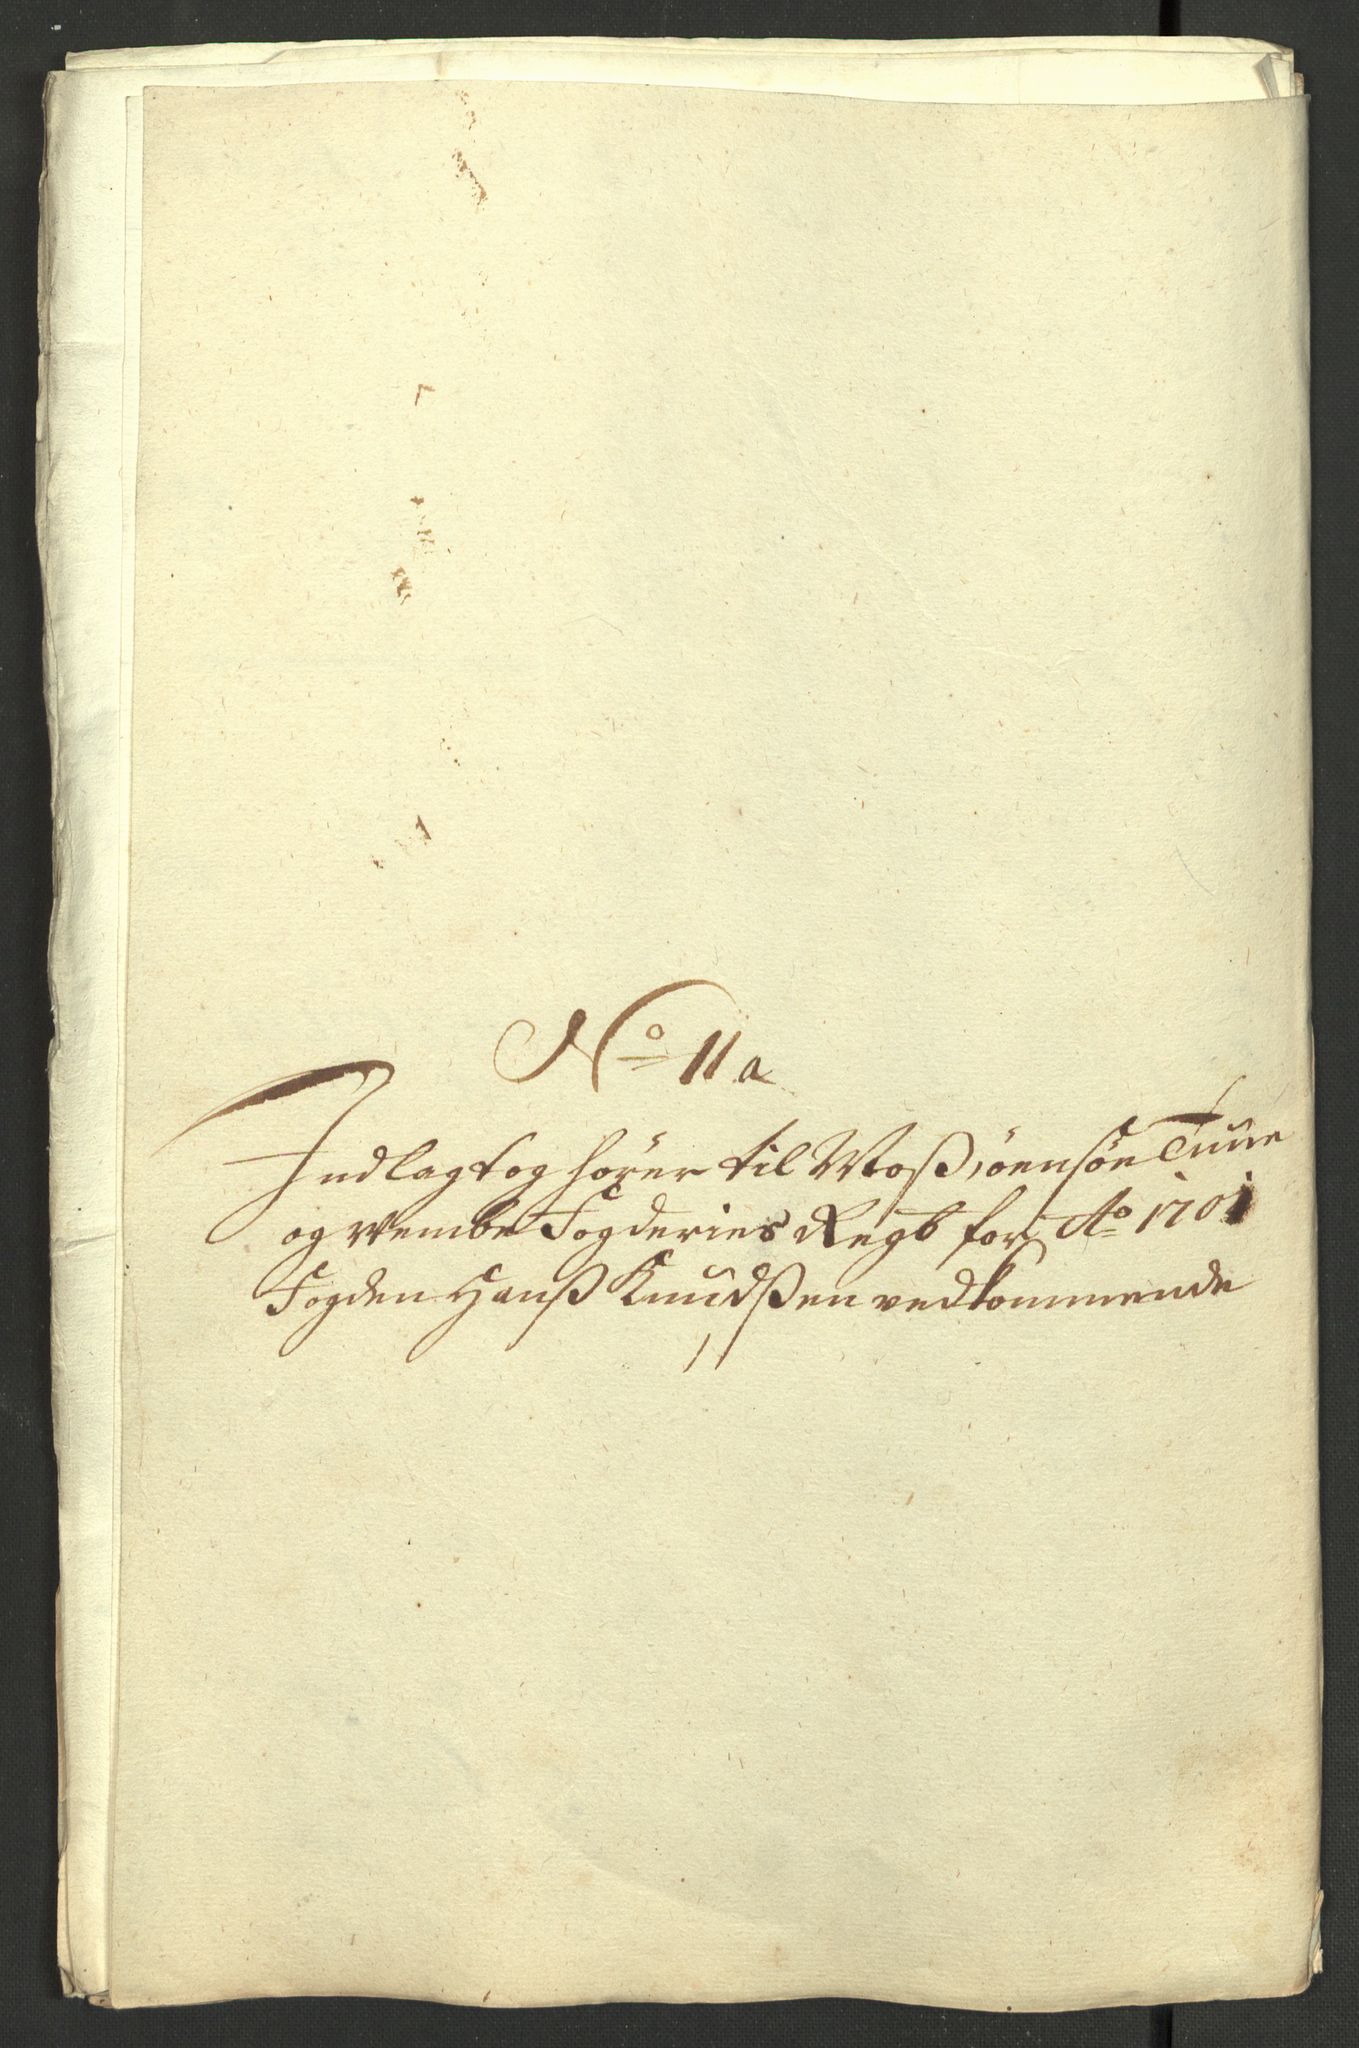 No 11a
Indlagt og hörer til Moß, öensöe Tune
og Vembe Fogderies Regb for Ao 1701
Fogden Hanß Knudßen vedkommende